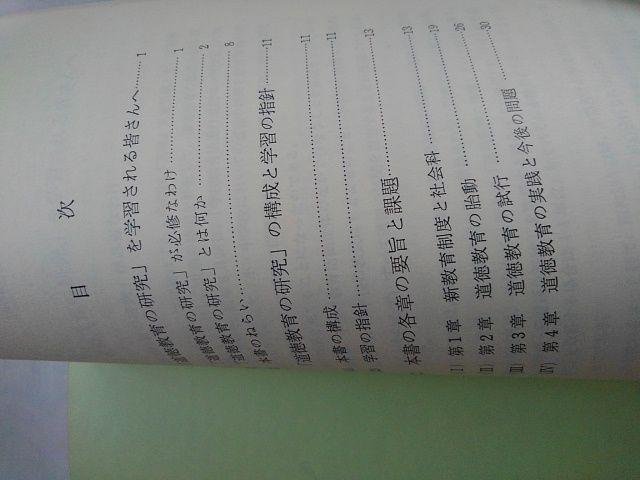 目次
道徳教育の研究」を学習される皆さんへ……1
道徳教育の研究」が必修なわけ……1
「道徳教育の研究」とは何か……2
本書のねらい……8
「道徳教育の研究」の構成と学習の指針……11
本書の構成……11
学習の指針……13
本書の各章の要旨と課題……13
〔Ⅰ〕 第1章 新教育制度と社会科……19
〔Ⅱ〕 第2章 道徳教育の胎動……26
〔Ⅲ〕 第3章 道徳教育の試行……30
〔Ⅳ〕 第4章 道徳教育の実践と今後の問題……